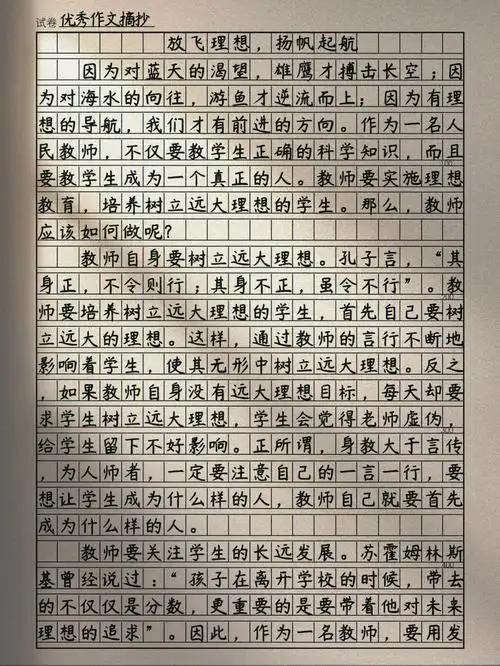 试卷 优秀作文摘抄
放飞理想，扬帆起航
因为对蓝天的渴望，雄鹰才搏击长空；因
为对海水的向往，游鱼才逆流而上；因为有理
想的导航，我们才有前进的方向。作为一名人
民教师，不仅要教学生正确的科学知识，而且
100
要教学生成为一个真正的人。教师要实施理想
教育，培养树立远大理想的学生。那么，教师
应该如何做呢？
教师自身要树立远大理想。孔子言，“其
身正，不令则行；其身不正，虽令不行”。教
200
师要培养树立远大理想的学生，首先自己要树
立远大的理想。这样，通过教师的言行不断地
影响着学生，使其无形中树立远大理想。反之
，如果教师自身没有远大理想目标，每天却要
求学生树立远大理想，学生会觉得老师虚伪，
300
给学生留下不好影响。正所谓，身教大于言传
，为人师者，一定要注意自己的一言一行，要
想让学生成为什么样的人，教师自己就要首先
成为什么样的人。
教师要关注学生的长远发展。苏霍姆林斯
400
基曾经说过：“孩子在离开学校的时候，带去
的不仅仅是分数，更重要的是要带着他对未来
理想的追求”。因此，作为一名教师，要用发